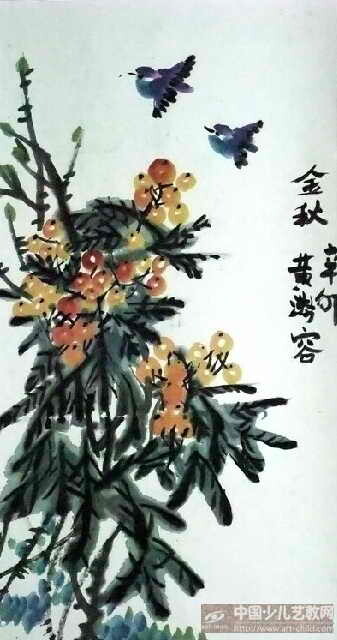 金秋
辛卯
黄鸿容
中国少儿艺教网
http://www.art-child.com